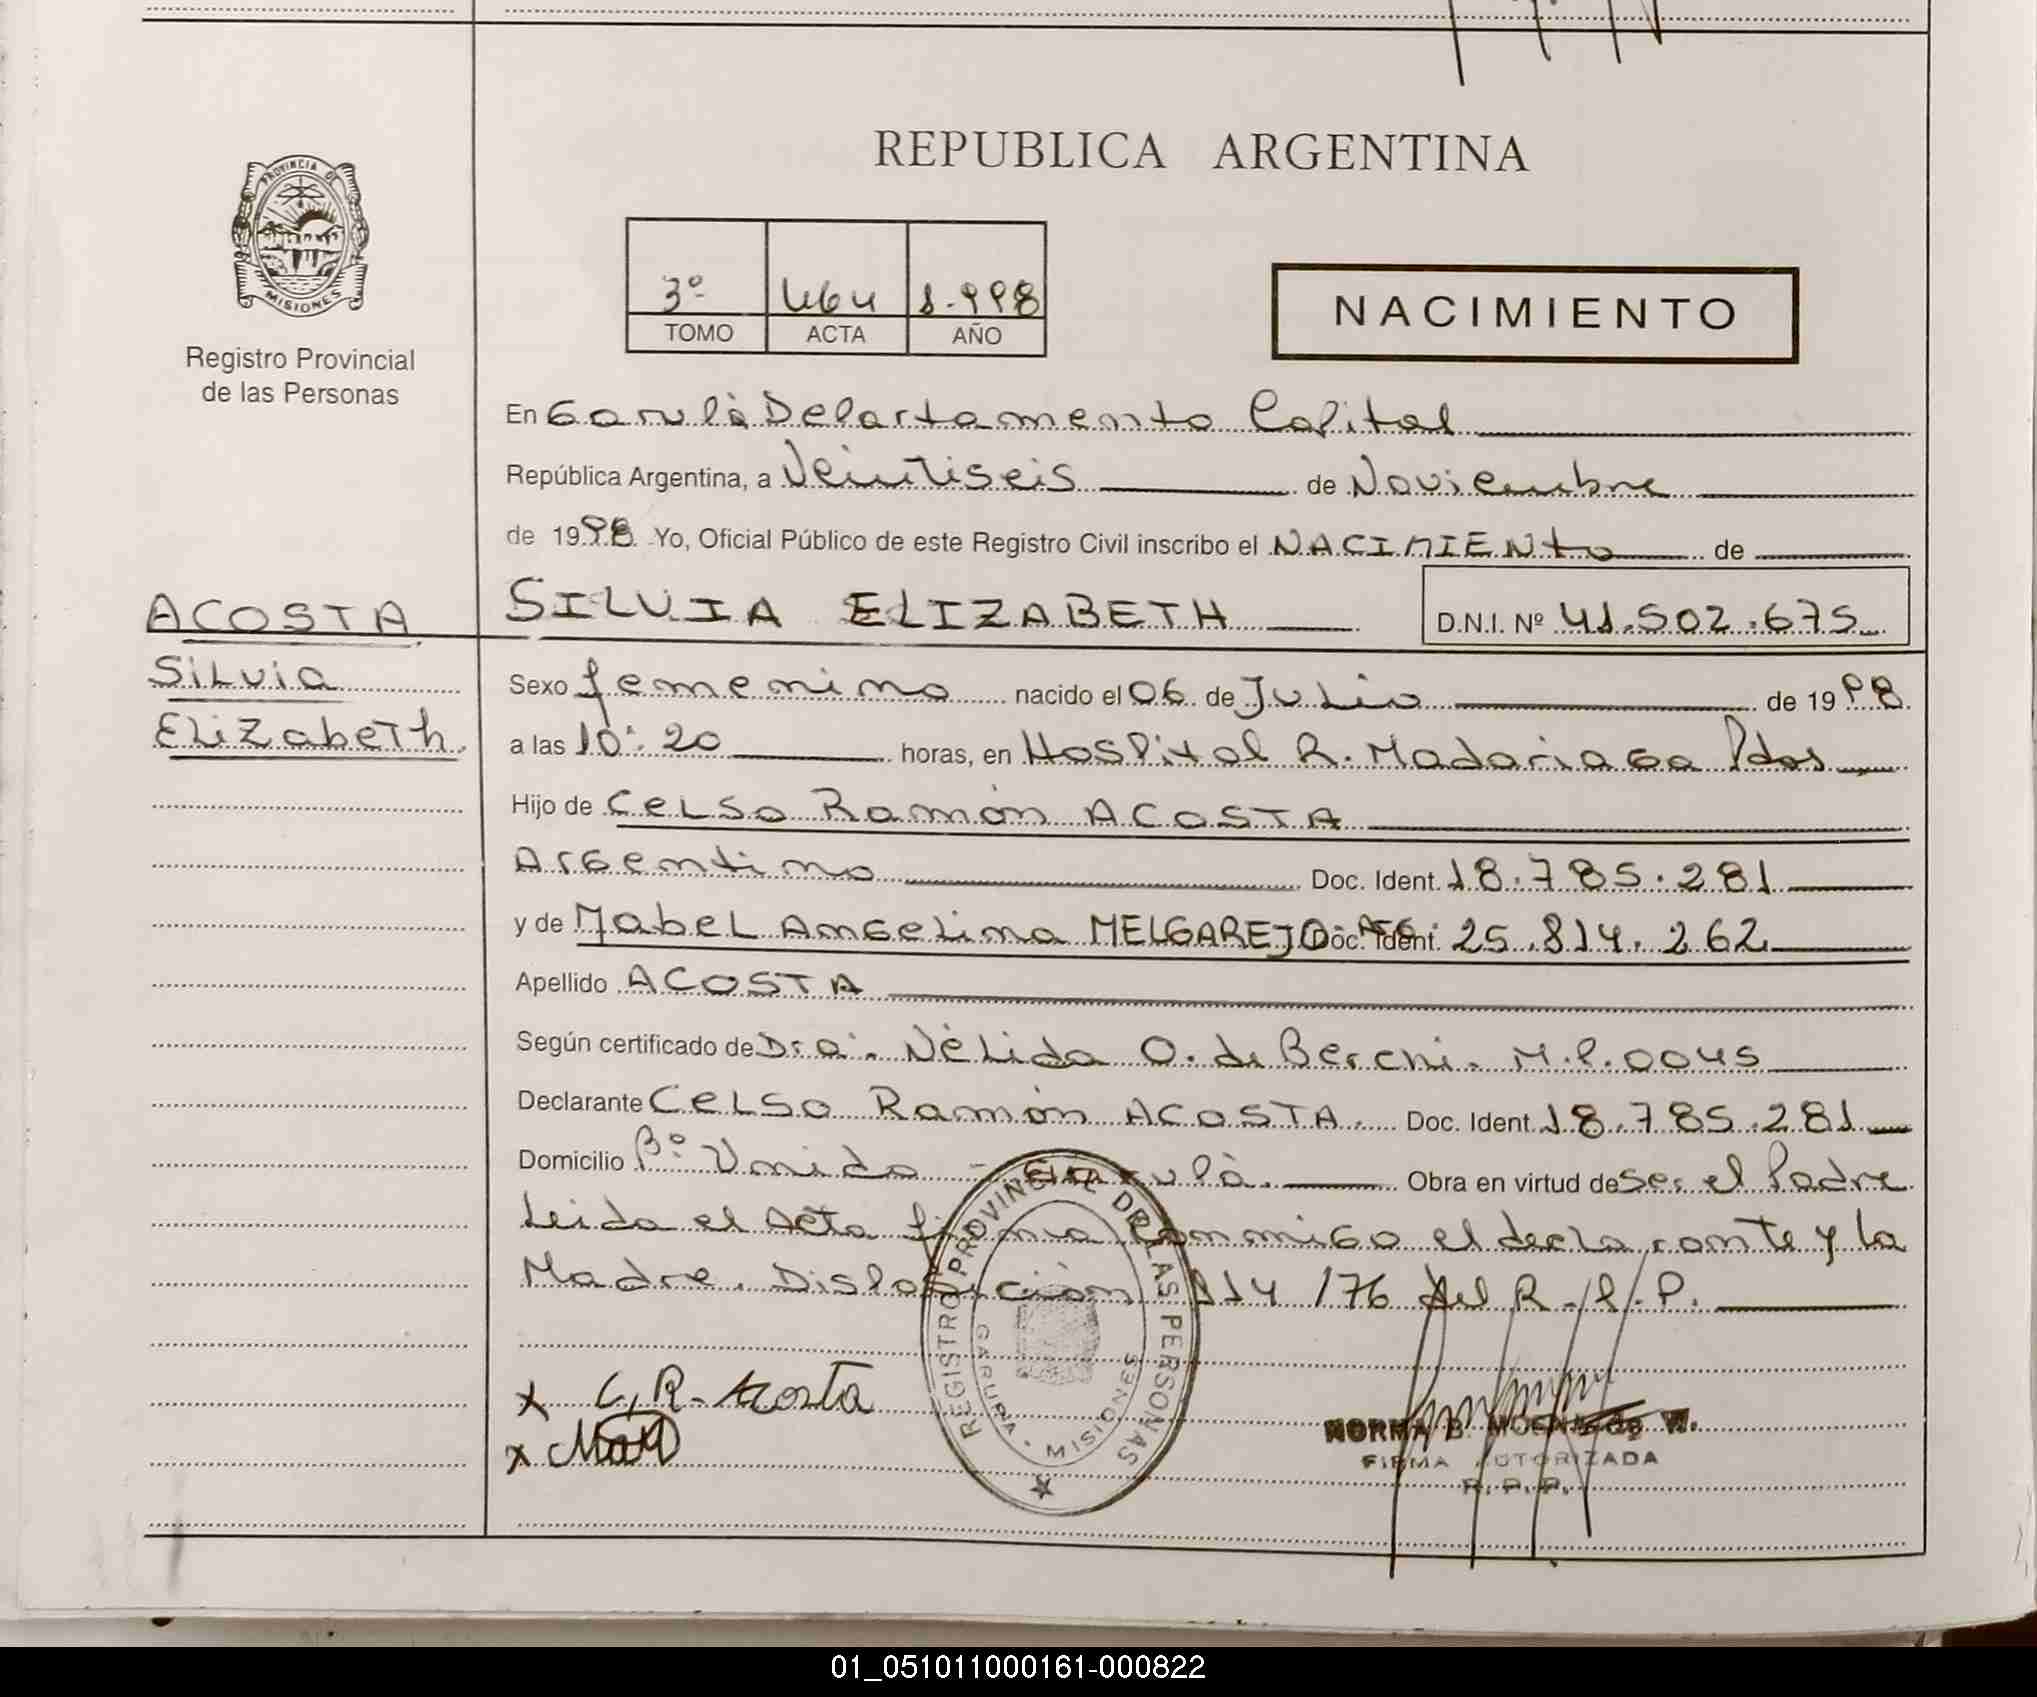 REPUBLICA ARGENTINA
PROVINCIA DE
MISIONES
Registro Provincial
de las Personas
3º 464 1.998
TOMO ACTA AÑO
NACIMIENTO
En Garupá Departamento Capital
República Argentina, a Veintiseis de Noviembre
de 1998 Yo, Oficial Público de este Registro Civil inscribo el NACIMIENto de
ACOSTA
Silvia
Elizabeth
SILVIA ELIZABETH D.N.I. Nº 41.502.675
Sexo femenino nacido el 06 de Julio de 1998
a las 10:20 horas, en Hospital R. Madariaga Pdas
Hijo de Celso Ramón ACOSTA
Argentino Doc. Ident. 18.785.281
y de Mabel Angelina MELGAREJO ARG. Doc. Ident. 25.814.262
Apellido ACOSTA
Según certificado de Dra. Nélida O. de Berchi. M.P.0045
Declarante Celso Ramón ACOSTA. Doc. Ident. 18.785.281
Domicilio Bº Unido - Garupá. Obra en virtud de Ser el Padre
Leida el Acta firma conmigo el declarante y la
Madre. Disposición 114/76 del R.P.P.
REGISTRO PROVINCIAL DE LAS PERSONAS
GARUPA · MISIONES
x C, R- Acosta
x
NORMA B.
FIRMA AUTORIZADA
R.P.P.
01_051011000161-000822